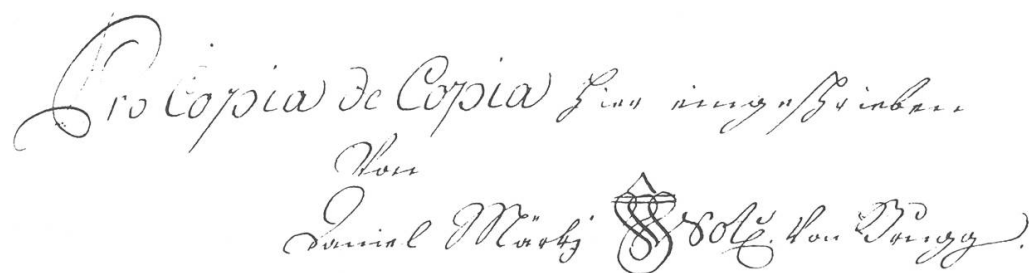 Pro Copia de Copia hier eingeschrieben
Von
Daniel Märki Not. Von Brugg.